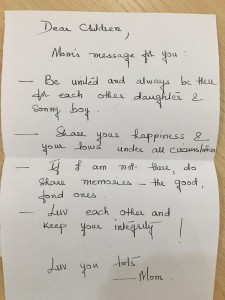 Dear Children,
Mom's message for you :
— Be united and always be there
for each other daughter &
sonny boy.
— Share your happiness &
your lows under all circumstances
— If I am not there, do
share memories – the good,
fond ones.
— Luv each other and
keep your integrity !
Luv you lots
— Mom.